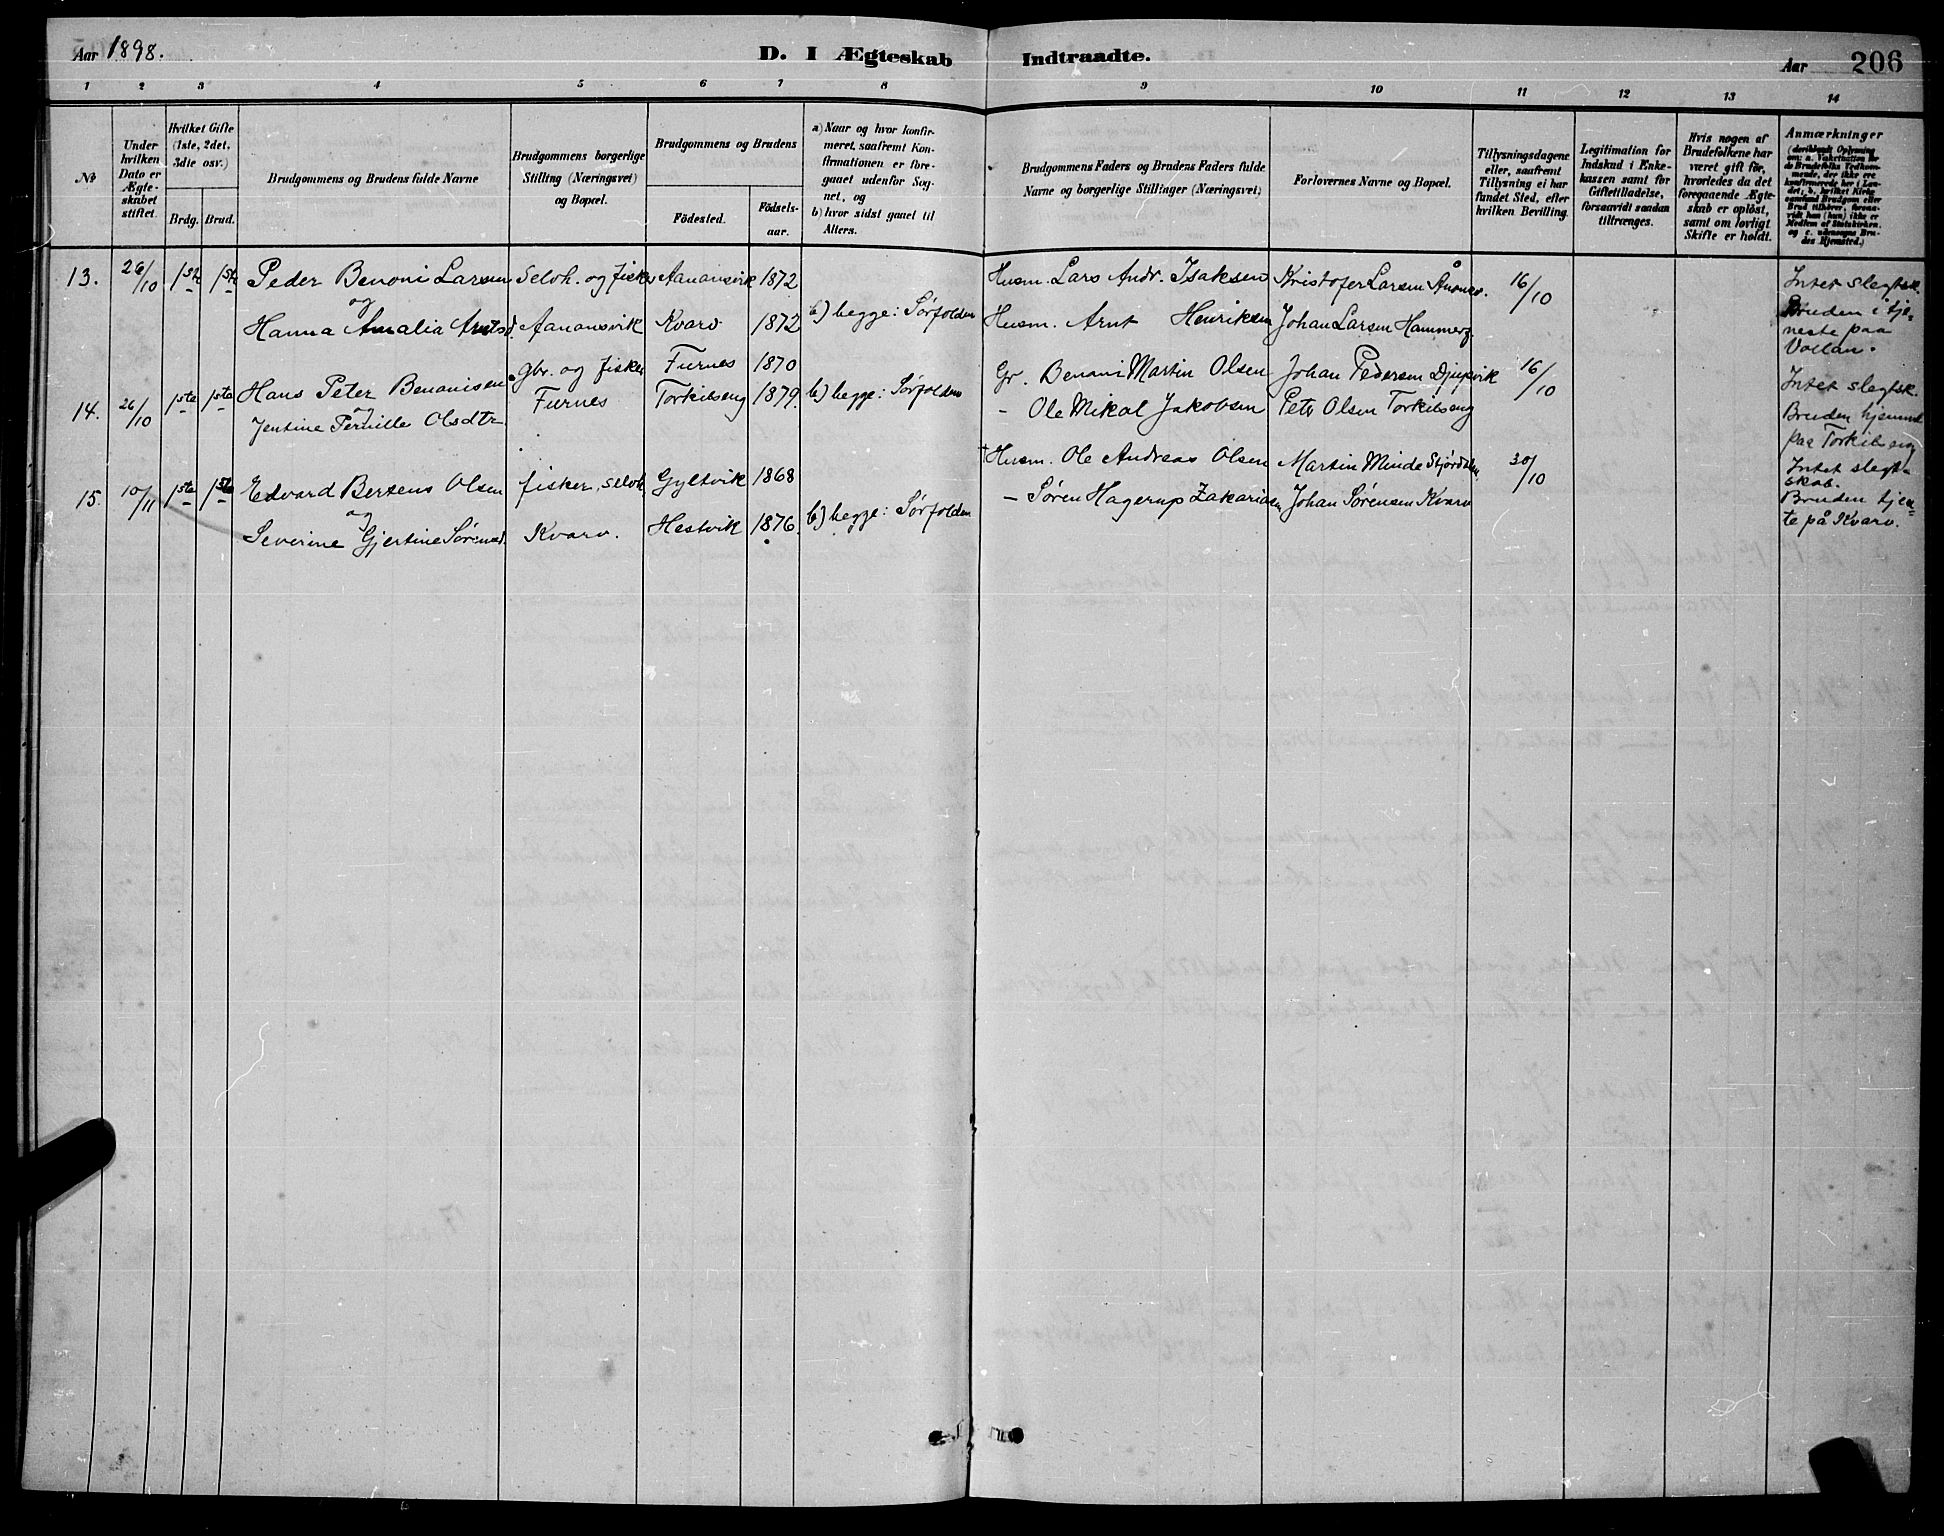 Aar 1898.
D. I Ægteskab Indtraadte.
Aar 206
1 2 3 4 5 6 7 8 9 10 11 12 13 14
No
Under hvilken Dato er Ægteskabet stiftet.
Hvilket Gifte (1ste, 2det, 3die osv.)
Brdg. Brud.
Brudgommens og Brudens fulde Navne
Brudgommens borgerlige Stilling (Næringsvei) og Bopæl.
Brudgommens og Brudens
Fødested. Fødselsaar.
a) Naar og hvor konfirmeret, saafremt Konfirmationen er foregaaet udenfor Sognet, og
b) hvor sidst gaaet til Alters.
Brudgommens Faders og Brudens Faders fulde Navne og borgerlige Stillinger (Næringsvei)
Forlovernes Navne og Bopæl.
Tillysningsdagene eller, saafremt Tillysning ei har fundet Sted, efter hvilken Bevilling.
Legitimation for Indskud i Enkekassen samt for Giftetilladelse, forsaavidt saadan tiltrænges.
Hvis nogen af Brudefolkene har været gift før, hvorledes da det foregaaende Ægteskab er opløst, samt om lovligt Skifte er holdt.
Anmærkninger
13. 26/10 1ste 1ste Peder Benoni Larsen Selvh. og fisker Aanonsvik 1872 Husm. Lars Andr. Isaksen Kristofer Larsen 16/10 Intet slegtsk.
og b) begge: Sørfolden Bruden i tje-
Hanna Amalia Arntsd. Aanonsvik Kvarv 1872 Husm. Arnt Henriksen Johan Larsen neste paa
Vollan.
14. 26/10 1ste 1ste Hans Peter Benonisen Gbr. og fisker Furnes 1870 Gr. Benoni Martin Olsen Johan Pedersen Djupvik 16/10 Intet slegtsk.
og Furnes Torkilseng 1879. b) begge: Sørfolden - Ole Mikal Jakobsen Peter Olsen Torkilseng Bruden hjemme
Jentine Pernille Olsdtr. paa Torkilseng
15. 10/11 1ste 1ste Edvard Bertens Olsen fisker, selvh. Gyltvik 1868 † Husm. Ole Andreas Olsen Martin Minde Stjørdalen 30/10 Intet slegt-
og b) begge: Sørfolden - Søren Hagerup Zakariasen Johan Sørensen Kvarv skab.
Severine Gjertine Sørensd. Kvarv. Hestvik 1876. Bruden tjen-
te på Kvarv.